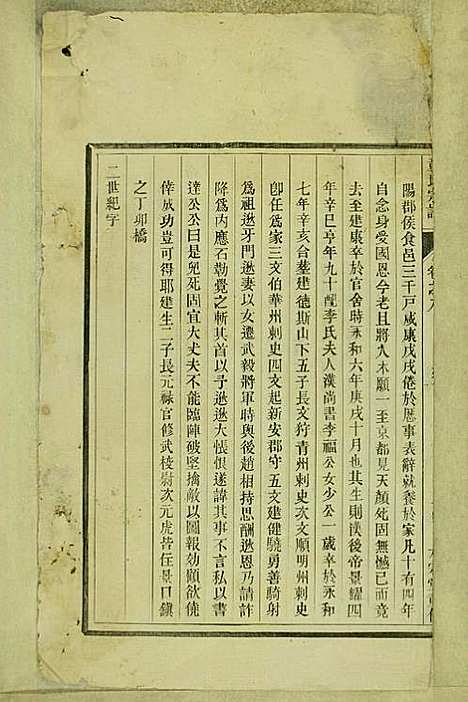 陽郡侯食邑三千戸咸康戊戌倦於厯事表辭就養於家凡十有四年
自念身受國恩今老且將入木願一至京都見天顏死固無憾已而竟
去至建康卒於官舍時永和六年庚戌十月也其生則漢後帝景耀四
年辛巳享年九十配李氏夫人漢尚書李福公女少公一歲卒於永和
七年辛亥合塟建德斯山下五子長文狩青州刺史次文順明州刺史
卽任爲家三文伯華州刺史四文起新安郡守五文建健驍勇善騎射
爲祖逖牙門逖妻以女遷武毅將軍時與後趙相持思酬逖恩乃請詐
降爲內應石勒覺之斬其首以予逖逖大悵恨遂諱其事不言私以書
達公公曰是兒死固宜大丈夫不能臨陣破堅擒敵以圖報効顧欲僥
倖成功豈可得耶建生二子長元祿官修武校尉次元虎皆任景口鎭
之丁卯橋
二世紀字